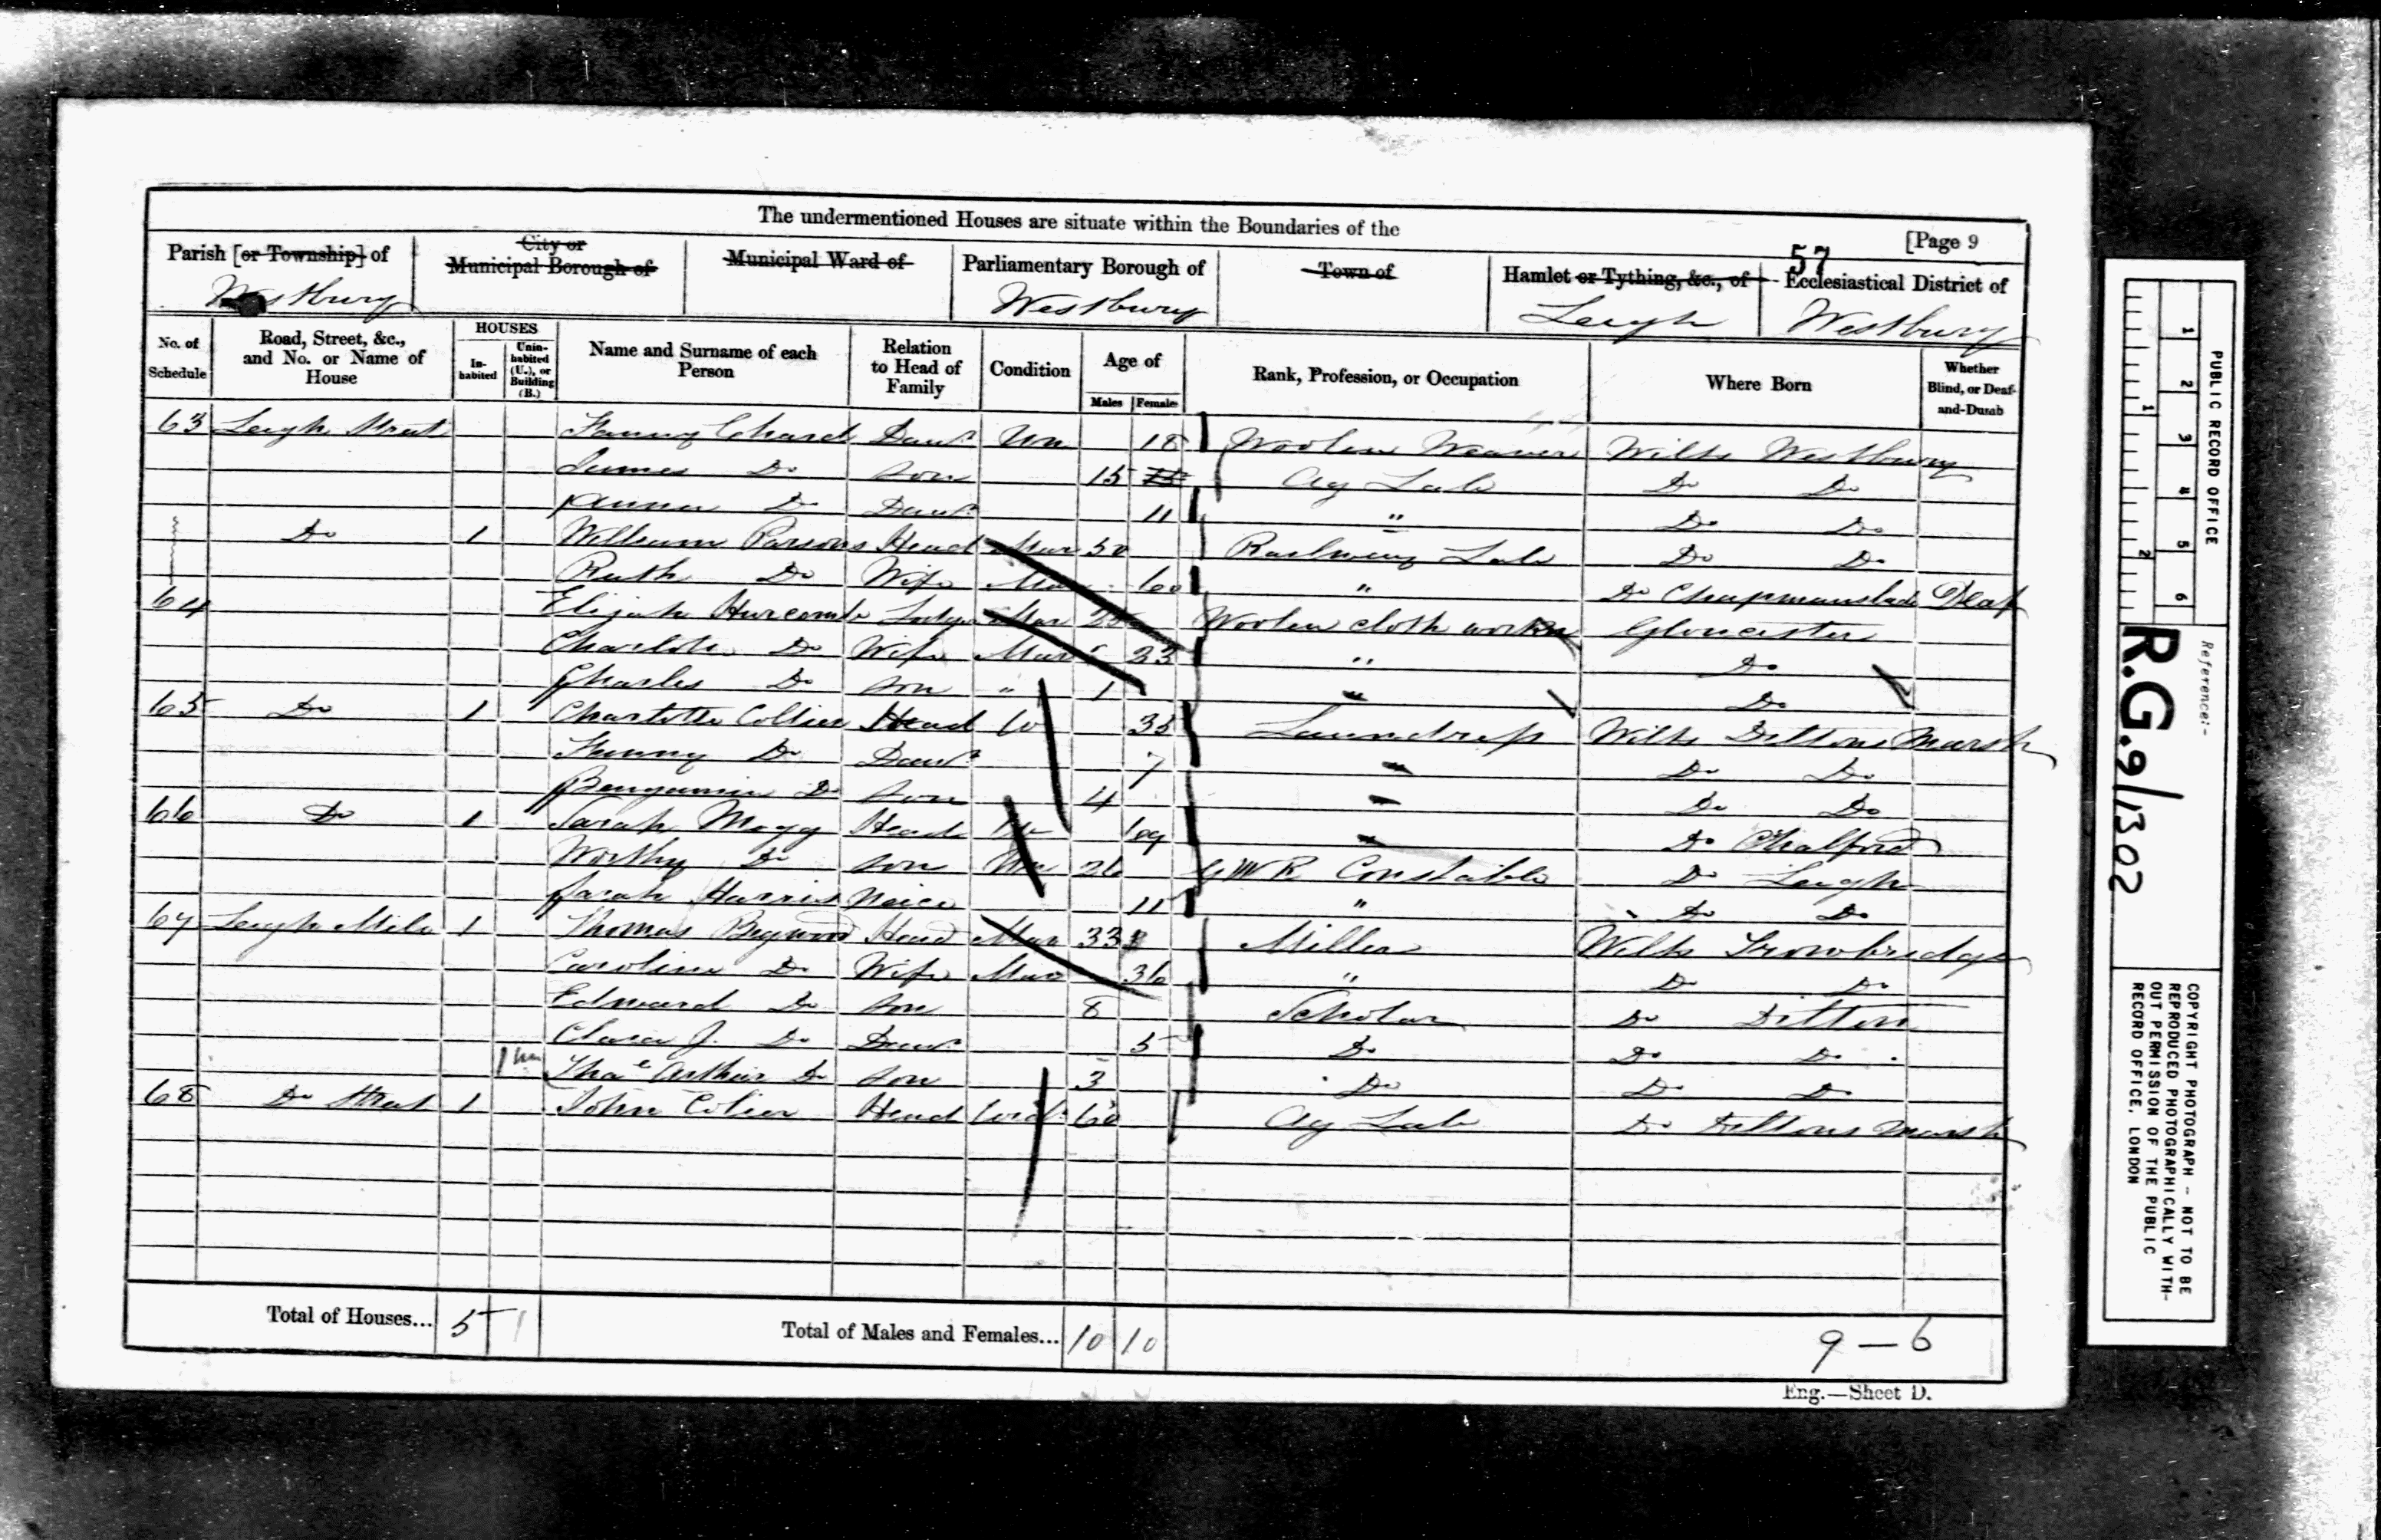 The undermentioned Houses are situate within the Boundaries of the
[Page 9
57
Parish [or Township] of Westbury
City or Municipal Borough of
Municipal Ward of
Parliamentary Borough of Westbury
Town of
Hamlet or Tything, &c., of Leigh
Ecclesiastical District of Westbury
No. of Schedule
Road, Street, &c., and No. or Name of House
HOUSES
In-habited
Unin-habited (U.), or Building (B.)
Name and Surname of each Person
Relation to Head of Family
Condition
Age of
Males
Females
Rank, Profession, or Occupation
Where Born
Whether Blind, or Deaf-and-Dumb
63 Leigh Street Fanny Chard Daur Un 18 Woolen Weaver Wilts Westbury
James Do Son 15 Ag Lab Do Do
Do Daur 11 " Do Do
Do 1 William Parsons Head Mar 50 Railway Lab Do Do
Ruth Do Wife Mar 60 " Do Chapmanslade Deaf
64 Elijah Hurcomb Lodger Mar Woolen cloth worker Gloucester
Charlotte Do Wife Mar 23 " Do
Charles Do Son " 1 " Do
65 Do 1 Charlotte Collier Head W 35 Laundress Wilts Diltons Marsh
Fanny Do Daur 7 " Do Do
Benjamin Do Son 4 " Do Do
66 Do 1 Sarah Mogg Head 69 " Do Chalford
Worthy Do Son Un 26 GWR Constable Do Leigh
Sarah Harris Neice 11 " Do Do
67 Leigh Mills 1 Thomas Head Mar 33 Miller Wilts Trowbridge
Caroline Do Wife Mar 36 " Do Do
Edward Do Son 8 Scholar Do Dilton
Clara J. Do Daur 5 Do Do Do
Arthur Do Son 3 Do Do Do
68 Do Street 1 John Colier Head Wid 60 Ag Lab Do Diltons Marsh
Total of Houses... 5
Total of Males and Females... 10 10
9 — 6
Eng.—Sheet D.
1 2 3 4 5 6
1 2
PUBLIC RECORD OFFICE
Reference:-
R.G. 9/1302
COPYRIGHT PHOTOGRAPH - NOT TO BE
REPRODUCED PHOTOGRAPHICALLY WITH-
OUT PERMISSION OF THE PUBLIC
RECORD OFFICE, LONDON